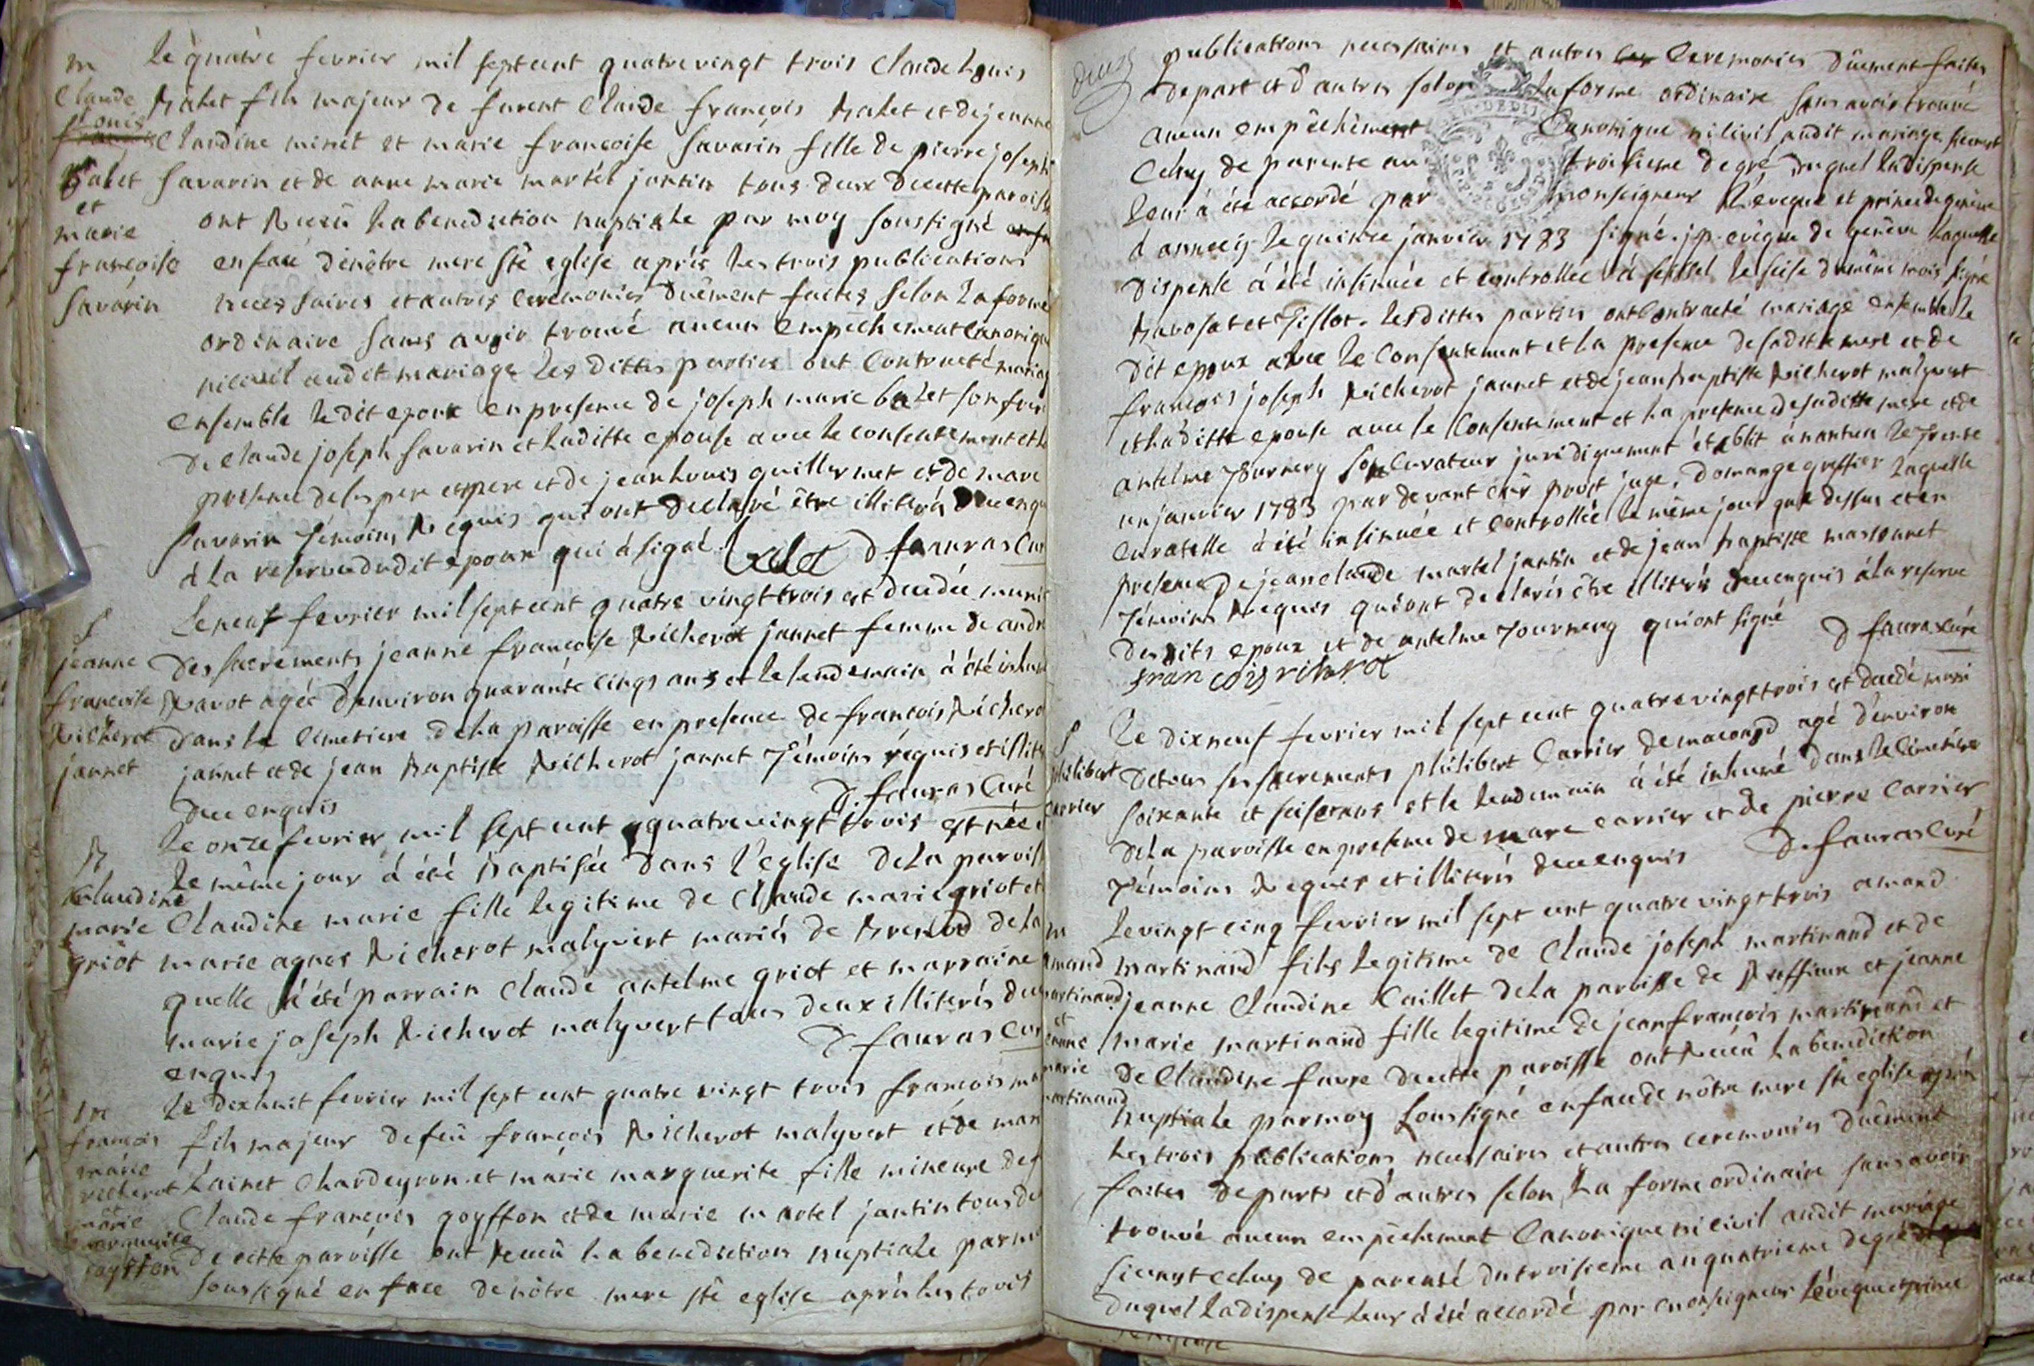 m
Claude
Louis
Balet
et
marie
françoise
Savarin
le quatre fevrier mil septcent quatrevingt trois Claude Louis
Balet fils majeur de furent Claude françois Balet et de jeanne
Claudine minet et marie françoise Savarin fille de pierre joseph
Savarin et de anne marie martel jantin tous deux de cette paroisse
ont Reçeû la benediction nuptiale par moy soussigné
en face de nôtre mere ste eglise aprés les trois publications
necessaires et autres ceremonies duêment faites selon la forme
ordinaire sans avoir trouvé aucun empechement canonique
ni civil audit mariage les dittes parties ont contracté mariage
ensemble ledit epoux en presence de joseph marie balet son frere
de Claude joseph Savarin et laditte epouse avec le consentement et la
presence de ses pere et mere et de jean Louis quillermet et de marc
Savarin témoins Requis qui ont declaré être illiterés de ce enquis
à la reserve dudit epoux qui à signé. Balet D fauras Curé
f
jeanne
francoise
Richerot
jannet
Le neuf fevrier mil sept cent quatre vingt trois est decedée munie
des sacrements jeanne françoise Richerot jannet femme de andré
Ravot agée d'environ quarante cinqs ans et le lendemain à été inhumée
dans le Cimetiere de la paroisse en presence de francois Richerot
jannet et de jean Baptiste Richerot jannet témoins requis et illiterés
de ce enquis D. fauras Curé
B
Claudine
marie
griot
Le onze fevrier mil sept cent quatrevingt trois est née et
le même jour à été Baptisée dans l'eglise de la paroisse
Claudine marie fille legitime de Claude marie griot et
marie agnes Richerot malyvert mariés de Brenod de la
quelle à été parrain Claude antelme griot et marraine
marie joseph Richerot malyvert tous deux illiterés de ce
enquis D fauras Curé
m
françois
marie
richerot
et
marie
marguerite
goyffon
Le dixhuit fevrier mil sept cent quatre vingt trois francois marie
fils majeur de feû françois Richerot malyvert et de marie
Lainet Chardeyron et marie marguerite fille mineure de
Claude françois goyffon et de marie martel jantin tous deux
de cette paroisse ont Reçeû la benediction nuptiale par moy
soussigné en face de nôtre mere ste eglise aprés les trois
publications necessaires et autres ceremonies duêment faites
de part et d'autres selon la forme ordinaire sans avoir trouvé
aucun empêchement Canonique ni civil audit mariage sicenest
Celuy de parenté au troisieme degré duquel la dispense
leur à été accordé par monseigneur L'eveque et prince de genève
d annecy le quinze janvier 1783 signé. j.p. evêque de genêve laquelle
dispense à été insinuée et controllée à seissel le seise du même mois signé
Ravosat et Gillot. Lesdittes parties ont contracté mariage ensemble le
dit epoux avec le Consentement et la presence de saditte mere et de
françois joseph Richerot jannet et de jean Baptiste Richerot malyvert
et laditte epouse avec le Consentement et la presence de saditte mere et de
antelme Journery son Curateur juridiquement établit à nantua le trente
un janvier 1783 par devant juge, Domange greffier laquelle
Curatelle à été insinuée et controllée le même jour que dessus et en
presence de jean claude martel jantin et de jean baptiste massonnet
témoins Requis qui ont declarés être illiterés de ce enquis à la reserve
desdits epoux et de antelme Journery qui ont signé D fauras Curé
francois richerot
f
philibert
Carrier
Le dixneuf fevrier mil sept cent quatrevingttrois est decedé muni
de tous ses sacrements philibert Carrier de maconod agé d'environ
soixante et seise ans et le lendemain à été inhumé dans le Cimetiere
de la paroisse en presence de marc carrier et de pierre Carrier
témoins Requis et illiterés de ce enquis D. fauras Curé
m
amand
martinand
et
jeanne
marie
martinand
Le vingt cinq fevrier mil sept cent quatre vingt trois amand
martinand fils legitime de Claude joseph martinand et de
jeanne Claudine Caillet de la paroisse de Ruffieux et jeanne
marie martinand fille legitime de jean françois martinand et
de Claudine favre de cette paroisse ont Reçeû la benediction
nuptiale par moy soussigné en face de nôtre mere ste eglise aprés
les trois publications necessaires et autres ceremonies duêment
faites de parts et d'autres selon la forme ordinaire sans avoir
trouvé aucun empêchement Canonique ni civil audit mariage
sicenest celuy de parenté du troisieme au quatrieme degré
duquel la dispense leur à été accordé par monseigneur L'évêque et prince